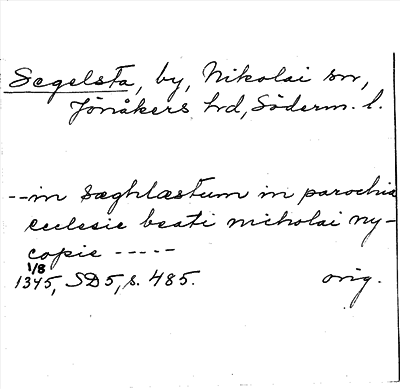 Segelsta, by, Nikolai sn,
Jönåkers hd, Söderm. l.
--in sæghlæstum in parochia
ecclesie beati nicholai ny-
copie -----
1/8
1345, SD5, s. 485. orig.